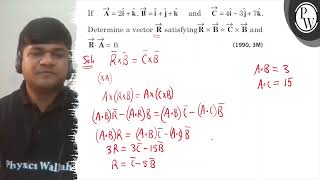 If A⃗ = 2î + k̂, B⃗ = î + ĵ + k̂ and C⃗ = 4î − 3ĵ + 7k̂.
Determine a vector R⃗ satisfying R⃗ × B⃗ = C⃗ × B⃗ and
R⃗·A⃗ = 0. (1990, 3M)
Solⁿ R̅ × B̅ = C̅ × B̅
A·B = 3
A·C = 15
(×A)
A × (R × B) = A × (C × B)
(A·B)R̅ − (A·R)B̅ = (A·B)C̅ − (A·C)B̅
(A·B)R = (A·B)C̅ − (A·C)B̅
3R = 3C̅ − 15B̅
R = C̅ − 5B̅
Physics Wallah